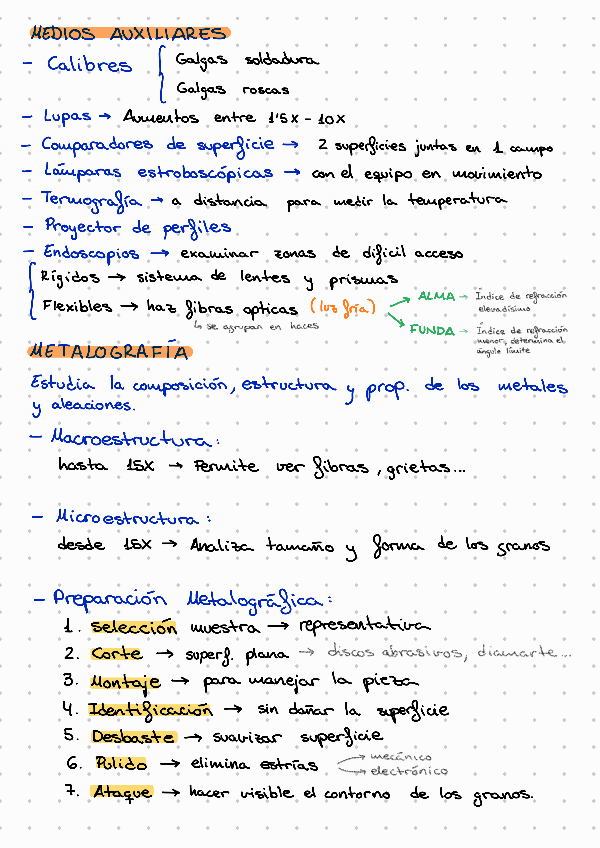 MEDIOS AUXILIARES
- Calibres
Galgas soldadura
Galgas roscas
- Lupas → Aumentos entre 1'5X - 10X
- Comparadores de superficie → 2 superficies juntas en 1 campo
- Lámparas estroboscópicas → con el equipo en movimiento
- Termografía → a distancia para medir la temperatura
- Proyector de perfiles
- Endoscopios → examinar zonas de dificil acceso
Rígidos → sistema de lentes y prismas
Flexibles → haz fibras opticas (luz fría)
↳ se agrupan en haces
ALMA → Índice de refracción
elevadísimo
FUNDA → Índice de refracción
menor, determina el
ángulo límite
METALOGRAFÍA
Estudia la composición, estructura y prop. de los metales
y aleaciones.
- Macroestructura:
hasta 15X → Permite ver fibras, grietas...
- Microestructura:
desde 15X → Analiza tamaño y forma de los granos
- Preparación Metalográfica:
1. Selección muestra → representativa
2. Corte → superf. plana → discos abrasivos, diamante...
3. Montaje → para manejar la pieza
4. Identificación → sin dañar la superficie
5. Desbaste → suavizar superficie
6. Pulido → elimina estrías → mecánico
→ electrónico
7. Ataque → hacer visible el contorno de los granos.